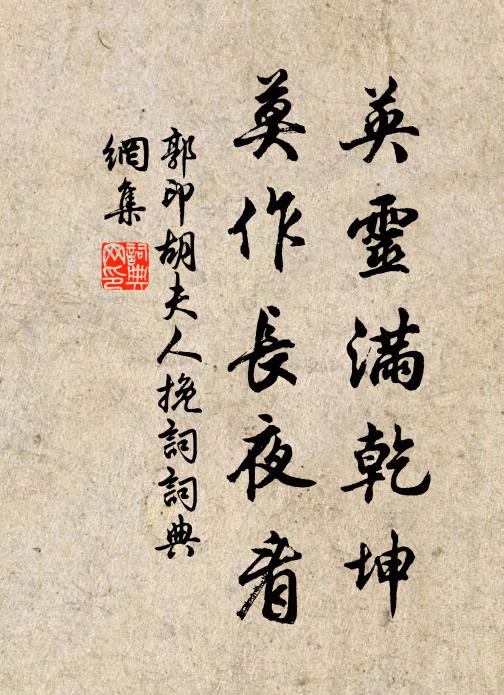 英靈滿乾坤
莫作長夜看
郭印胡夫人挽詞詞典
網集
詞典
网印